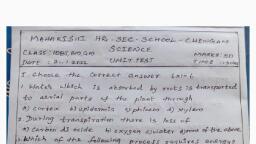 MAHARISHI HR. SEC. SCHOOL - CHENGAM
SCIENCE
UNIT TEST
I. Choose the correct answer
1. Water which is absorbed by roots is transported
to aerial parts of the plant through
a) cortex b) epidermis c) phloem d) xylem
2. During transpiration there is loss of
a) carbon di oxide b) oxygen c) water d) none of the above
3. Which of the following process requires energy?